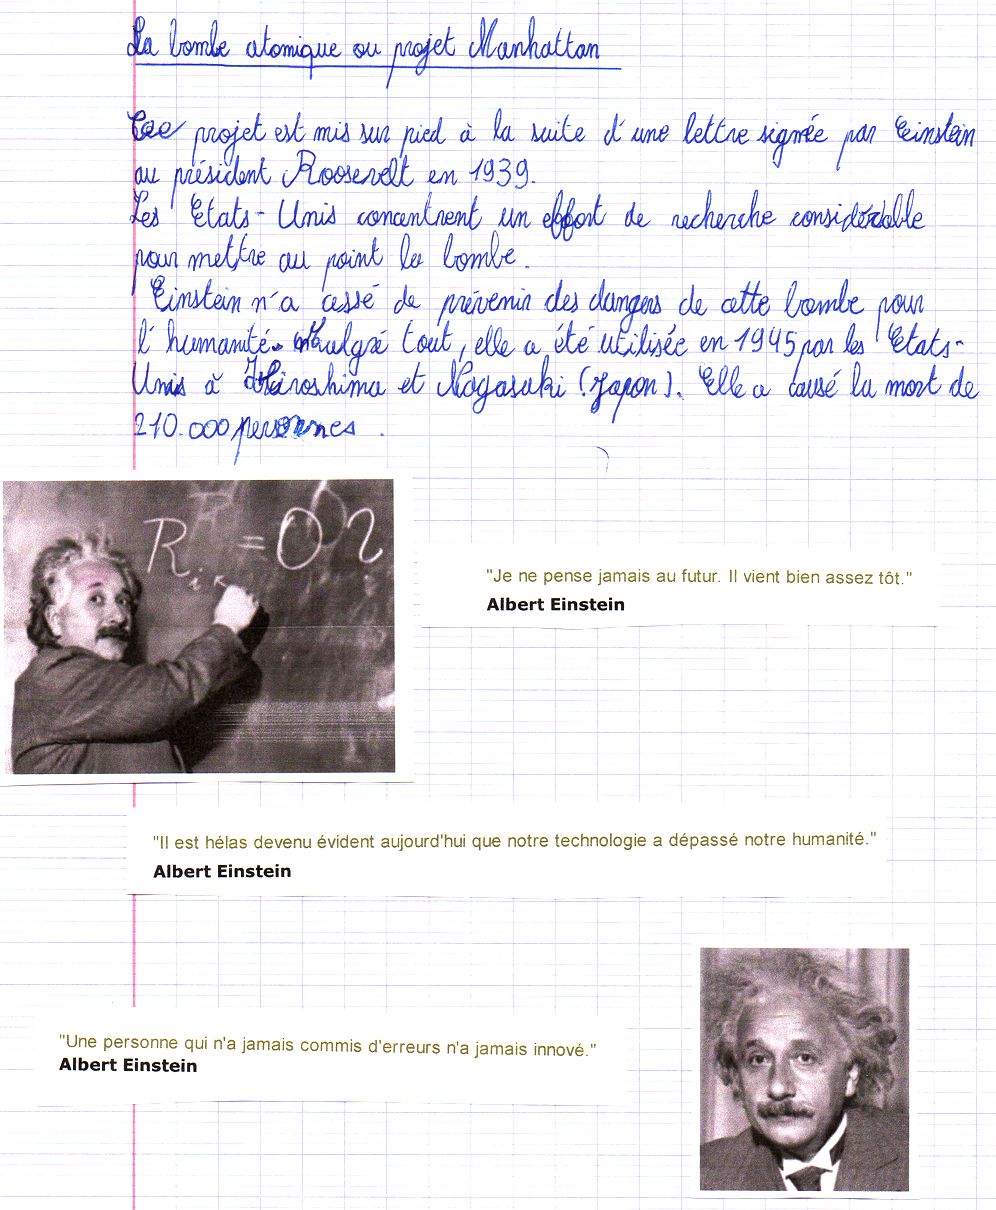 La bombe atomique ou projet Manhattan
Ce projet est mis sur pied à la suite d'une lettre signée par Einstein
au président Roosevelt en 1939.
Les Etats-Unis concentrent un effort de recherche considérable
pour mettre au point la bombe.
Einstein n'a cessé de prévenir des dangers de cette bombe pour
l'humanité. Malgré tout, elle a été utilisée en 1945 par les Etats-
Unis à Hiroshima et Nagasaki (Japon). Elle a causé la mort de
210.000 personnes.
R i k = 0 ?
"Je ne pense jamais au futur. Il vient bien assez tôt."
Albert Einstein
"Il est hélas devenu évident aujourd'hui que notre technologie a dépassé notre humanité."
Albert Einstein
"Une personne qui n'a jamais commis d'erreurs n'a jamais innové."
Albert Einstein